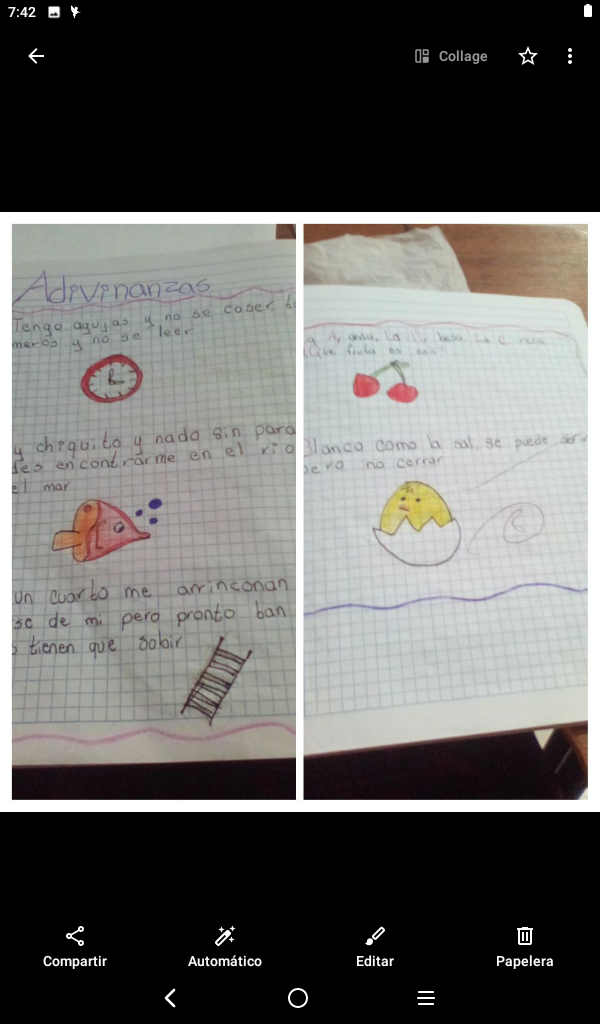 7:42
Collage
Adivinanzas
Tengo agujas y no se coser, t
meros y no se leer
y chiquito y nado sin para
des encontrarme en el rio
el mar
un cuarto me arrinconan
se de mi pero pronto ban
tienen que sobir
anda, La B, besa. La C reza
¿Que fruta es esa?
Blanco como la sal, se puede abrir
pero no cerrar
Compartir
Automático
Editar
Papelera